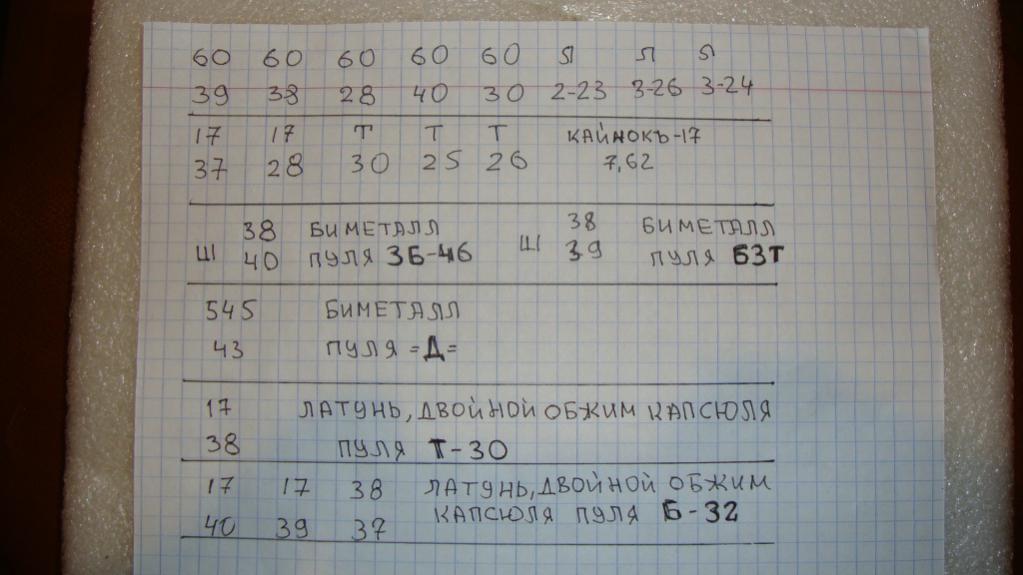 60 60 60 60 60 Л Л Л
39 38 28 40 30 2-23 3-26 3-24
17 17 Т Т Т КАЙНОКЪ-17
37 28 30 25 26 7,62
38 БИМЕТАЛЛ 38 БИМЕТАЛЛ
Ш 40 ПУЛЯ ЗБ-46 Ш 39 ПУЛЯ БЗТ
545 БИМЕТАЛЛ
43 ПУЛЯ =Д=
17 ЛАТУНЬ, ДВОЙНОЙ ОБЖИМ КАПСЮЛЯ
38 ПУЛЯ Т-30
17 17 38 ЛАТУНЬ, ДВОЙНОЙ ОБЖИМ
40 39 37 КАПСЮЛЯ ПУЛЯ Б-32